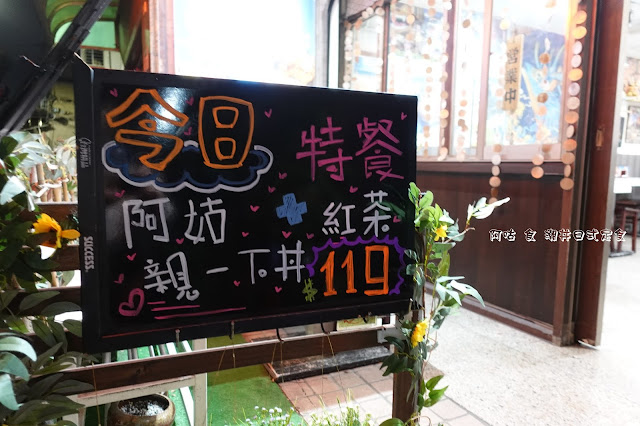 今日
特餐
阿姑 + 紅茶
親一下丼 $119
SUCCESS
營業中
阿姑 食 潮丼日式定食